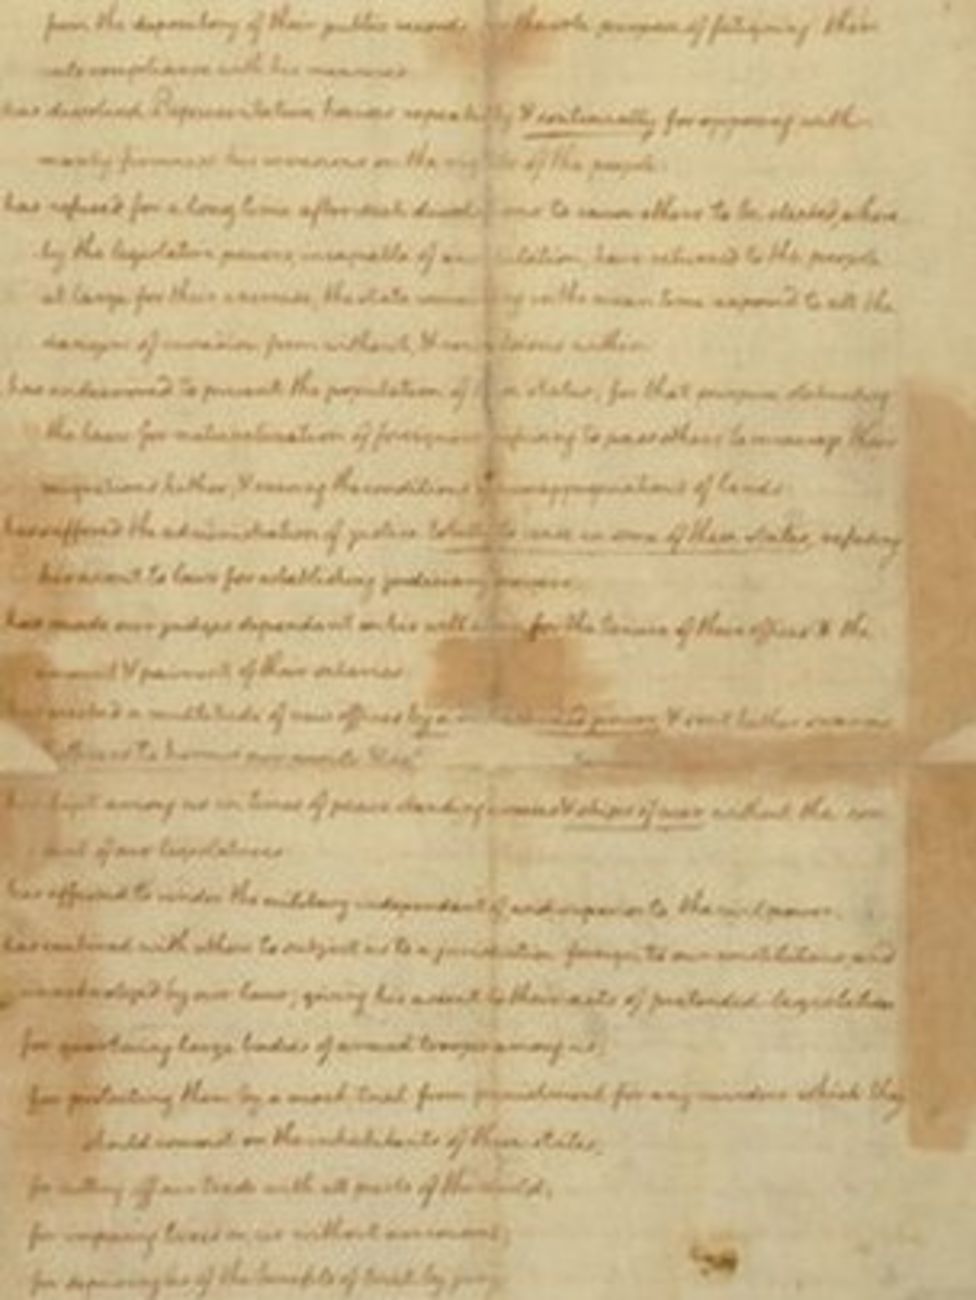 from the depository of their public records, for the sole purpose of fatiguing them
into compliance with his measures
has dissolved Representative houses repeatedly & continually for opposing with
manly firmness his invasions on the rights of the people.
has refused for a long time after such dissolutions to cause others to be elected, where
by the legislative powers, incapable of annihilation, have returned to the people
at large for their exercise, the state remaining in the mean time exposed to all the
dangers of invasion from without, & convulsions within
has endeavored to prevent the population of these states; for that purpose obstructing
the laws for naturalization of foreigners refusing to pass others to encourage their
migrations hither, & raising the conditions of new appropriations of lands
has suffered the administration of justice totally to cease in some of these states, refusing
his assent to laws for establishing judiciary powers
has made our judges dependant on his will alone, for the tenure of their offices & the
amount & paiment of their salaries
has erected a multitude of new offices by a self assumed power & sent hither swarms
of officers to harrass our people
has kept among us in times of peace standing armies & ships of war without the con
sent of our legislatures
has affected to render the military independent of and superior to the civil power.
has combined with others to subject us to a jurisdiction foreign to our constitutions and
unacknoleged by our laws; giving his assent to their acts of pretended legislation
for quartering large bodies of armed troops among us;
for protecting them by a mock trial from punishment for any murders which they
should commit on the inhabitants of these states;
for cutting off our trade with all parts of the world;
for imposing taxes on us without our consent;
for depriving us of the benefits of trial by jury